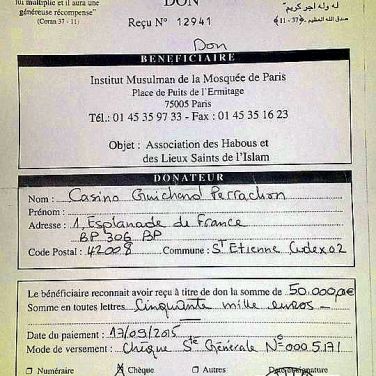 lui multiplie et il aura une
généreuse récompense"
(Coran 37 - 11)
DON
Reçu N° 12941
له وله أجر كريم"
صدق الله العظيم
Don
BENEFICIAIRE
Institut Musulman de la Mosquée de Paris
Place de Puits de l'Ermitage
75005 Paris
Tél.: 01 45 35 97 33 - Fax : 01 45 35 16 23
Objet : Association des Habous et
des Lieux Saints de l'Islam
DONATEUR
Nom : Casino Guichard Perrachon
Prénom :
Adresse : 1, Esplanade de France
BP 306 BP
Code Postal : 42008 Commune : St Etienne Cedex 02
Le bénéficiaire reconnait avoir reçu à titre de don la somme de 50.000,00€
Somme en toutes lettres Cinquante mille euros
Date du paiement : 17/09/2015
Mode de versement : Chèque Sté Générale N° 000 5171
Numéraire X Chèque Autres Date et signature